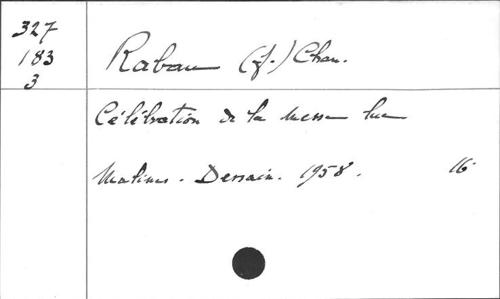 327
183
3
Rabau (J.) Chan.
Célébration de la messe lue
Malines. Dessain. 1958. 16